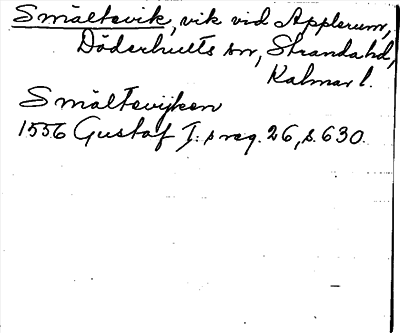 Smältsvik, vik vid Applerum,
Döderhults sn, Stranda hd,
Kalmar l.
Smältsvijken
1556 Gustaf I:s reg. 26, s. 630.